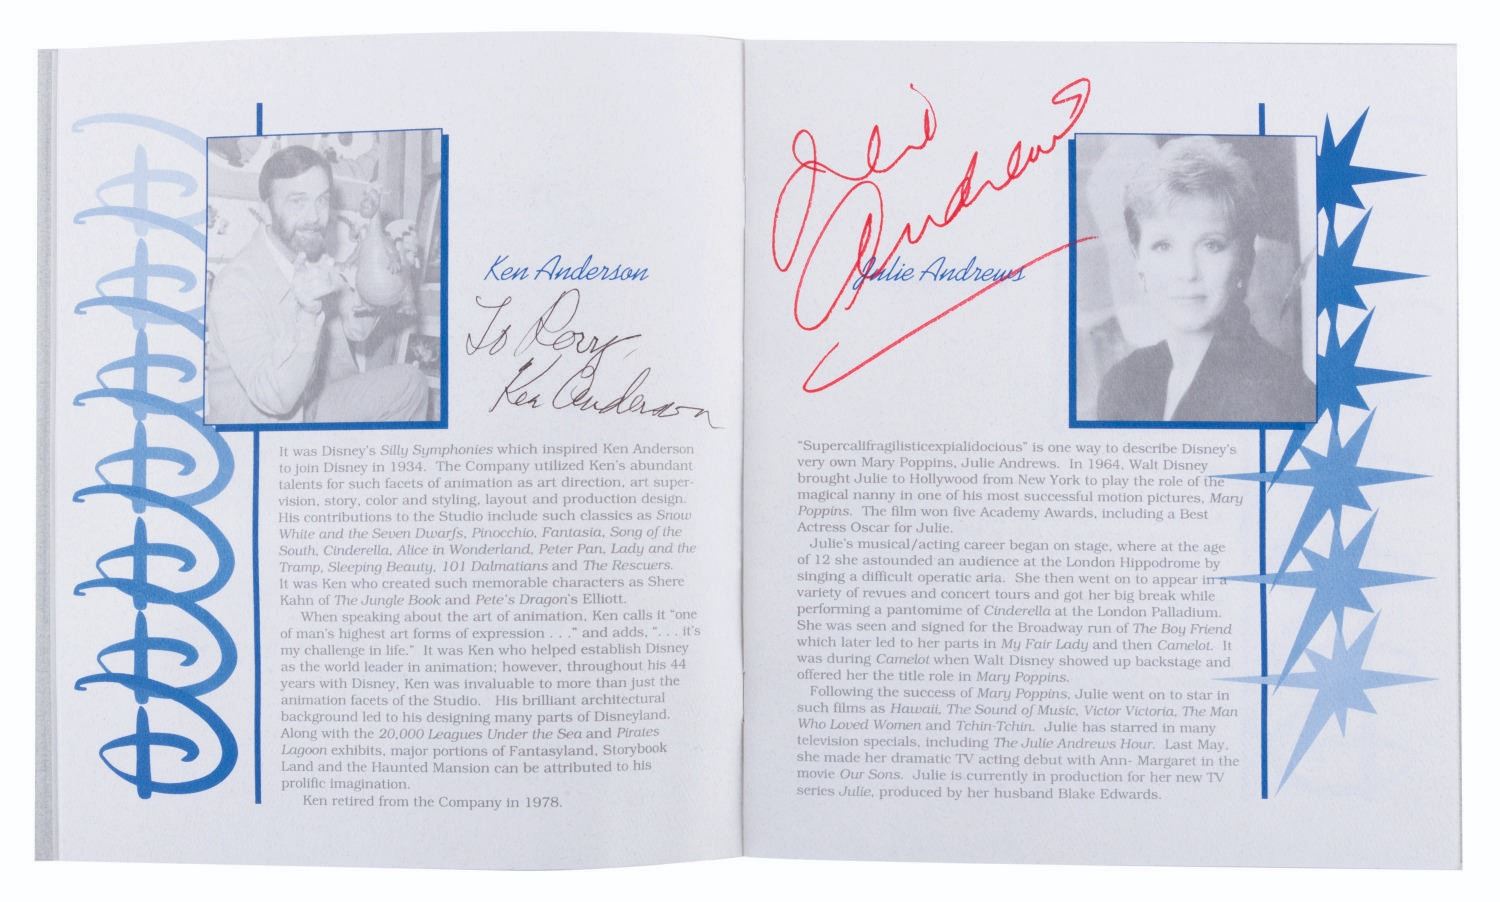 Ken Anderson
To Rory,
Ken Anderson
It was Disney's Silly Symphonies which inspired Ken Anderson
to join Disney in 1934. The Company utilized Ken's abundant
talents for such facets of animation as art direction, art super-
vision, story, color and styling, layout and production design.
His contributions to the Studio include such classics as Snow
White and the Seven Dwarfs, Pinocchio, Fantasia, Song of the
South, Cinderella, Alice in Wonderland, Peter Pan, Lady and the
Tramp, Sleeping Beauty, 101 Dalmatians and The Rescuers.
It was Ken who created such memorable characters as Shere
Kahn of The Jungle Book and Pete's Dragon's Elliott.
When speaking about the art of animation, Ken calls it "one
of man's highest art forms of expression . . ." and adds, ". . . it's
my challenge in life." It was Ken who helped establish Disney
as the world leader in animation; however, throughout his 44
years with Disney, Ken was invaluable to more than just the
animation facets of the Studio. His brilliant architectural
background led to his designing many parts of Disneyland.
Along with the 20,000 Leagues Under the Sea and Pirates
Lagoon exhibits, major portions of Fantasyland, Storybook
Land and the Haunted Mansion can be attributed to his
prolific imagination.
Ken retired from the Company in 1978.
Julie
Andrews
Julie Andrews
"Supercalifragilisticexpialidocious" is one way to describe Disney's
very own Mary Poppins, Julie Andrews. In 1964, Walt Disney
brought Julie to Hollywood from New York to play the role of the
magical nanny in one of his most successful motion pictures, Mary
Poppins. The film won five Academy Awards, including a Best
Actress Oscar for Julie.
Julie's musical/acting career began on stage, where at the age
of 12 she astounded an audience at the London Hippodrome by
singing a difficult operatic aria. She then went on to appear in a
variety of revues and concert tours and got her big break while
performing a pantomime of Cinderella at the London Palladium.
She was seen and signed for the Broadway run of The Boy Friend
which later led to her parts in My Fair Lady and then Camelot. It
was during Camelot when Walt Disney showed up backstage and
offered her the title role in Mary Poppins.
Following the success of Mary Poppins, Julie went on to star in
such films as Hawaii, The Sound of Music, Victor Victoria, The Man
Who Loved Women and Tchin-Tchin. Julie has starred in many
television specials, including The Julie Andrews Hour. Last May,
she made her dramatic TV acting debut with Ann- Margaret in the
movie Our Sons. Julie is currently in production for her new TV
series Julie, produced by her husband Blake Edwards.